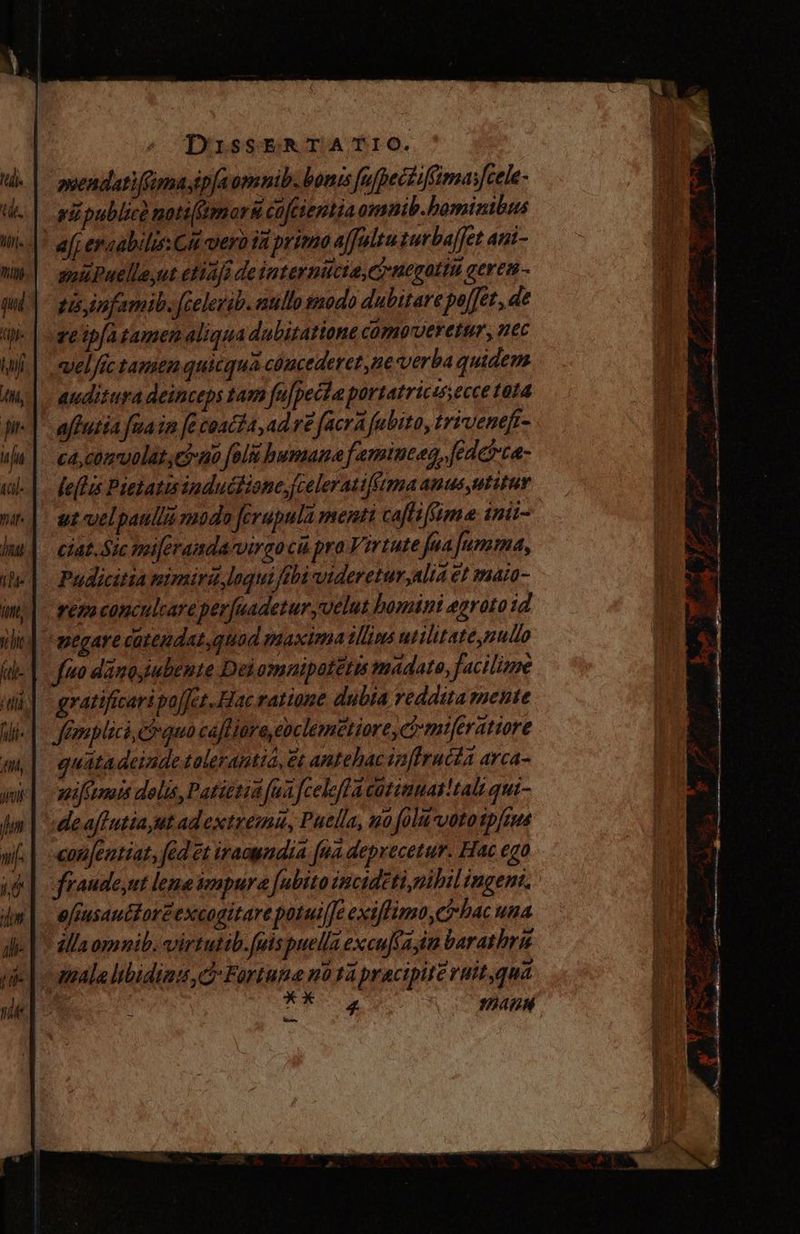 DISSERTATIO.
mendatiſsima, ipſa omnib. bonis ſuſpectiſsima, ſcele-
rũ publicè notiſsimorũ cõſcientia omnib. hominibus
aſpernabilis: Cũ verò iã primo aſſultu turbaſſet ani-
mũ Puellæ, ut etiãſi de internũcia, & negotiũ geren-
tis, infamib. ſcelerib. nullo modo dubitare poſſet, de
re ipſa tamen aliqua dubitatione commoveretur, nec
vel ſic tamen quicquã concederet, ne verba quidem
auditura deinceps tam ſuſpectæ portatricis; ecce tota
aſtutia ſua in ſe coactâ, ad rẽ ſacrã ſubito, triveneſi-
ca, convolat, & nõ ſolũ humanæ femineæq́, ſed & cæ-
leſtis Pietatis inductione, ſceleratiſsima anus, utitur
ut vel paullũ modo ſcrupulũ menti caſtiſsimæ inii-
ciat. Sic miſeranda virgo cũ pro Virtute ſua ſumma,
Pudicitia nimirũ, loqui ſibi videretur, aliã et maio-
rem conculcare perſuadetur, velut homini ægroto id
negare cõtendat, quod maxima illius utilitate, nullo
ſuo dãno, jubente Dei omnipotẽtis mãdato, facilimè
gratificari poſſet. Hac ratione dubia reddita mente
ſimplici, & quo caſtiore, eò clemẽtiore, & miſeratiore
quãta deinde tolerantiâ, et antehac inſtructâ arca-
niſsimis dolis, Patiẽtiã ſuã ſceleſtã cõtinuat! tali qui-
de aſtutia, ut ad extremũ, Puella, nõ ſolũ voto ipſius
conſentiat, ſed et iracundiã ſuã deprecetur. Hac ego
fraude, ut lenæ impuræ ſubito incidẽti, nihil ingeni,
oſius auctorẽ excogitare potuiſſe exiſtimo, & hac una
illa omnib. virtutib. ſuis puella excuſſa, in barathrũ
malæ libidinis, & Fortunæ nõ tã præcipitẽ ruit, quã
** 4 manu